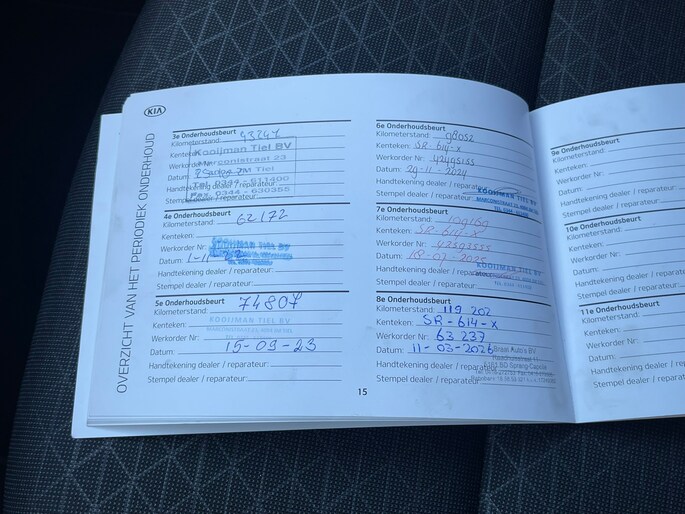 KIA
OVERZICHT VAN HET PERIODIEK ONDERHOUD
3e Onderhoudsbeurt
Kilometerstand: 43247
Kenteken:
Werkorder Nr:
Datum:
Handtekening dealer / reparateur:
Stempel dealer / reparateur:
Kooijman Tiel BV
Marconistraat 23
Tiel
Tel. 0344 - 611400
Fax. 0344 - 630355
4e Onderhoudsbeurt
Kilometerstand: 62172
Kenteken:
Werkorder Nr:
Datum: 1-11
Handtekening dealer / reparateur:
Stempel dealer / reparateur:
KOOIJMAN TIEL BV
5e Onderhoudsbeurt
Kilometerstand: 74807
Kenteken:
KOOIJMAN TIEL BV
Werkorder Nr:
Datum: 15-09-23
Handtekening dealer / reparateur:
Stempel dealer / reparateur:
6e Onderhoudsbeurt
Kilometerstand:
Kenteken: SR-614-X
Werkorder Nr:
Datum: 29-11-2024
Handtekening dealer / reparateur
Stempel dealer / reparateur
KOOIJMAN TIEL BV
7e Onderhoudsbeurt
Kilometerstand:
Kenteken: SR-614-X
Werkorder Nr:
Datum:
Handtekening dealer / reparateur
Stempel dealer / reparateur:
KOOIJMAN TIEL BV
8e Onderhoudsbeurt
Kilometerstand: 119 202
Kenteken: SR-614-X
Werkorder Nr: 63 237
Datum: 11-03-2026
Handtekening dealer / reparateur
Stempel dealer / reparateur:
Braat Auto's BV
Sprang-Capelle
15
9e Onderhoudsbeurt
Kilometerstand:
Kenteken:
Werkorder Nr:
Datum:
Handtekening dealer / reparateur:
Stempel dealer / reparateur:
10e Onderhoudsbeurt
Kilometerstand:
Kenteken:
Werkorder Nr:
Datum:
Handtekening dealer / reparateur:
Stempel dealer / reparateur:
11e Onderhoudsbeurt
Kilometerstand:
Kenteken:
Werkorder Nr:
Datum:
Handtekening dealer / reparateur:
Stempel dealer / reparateur: